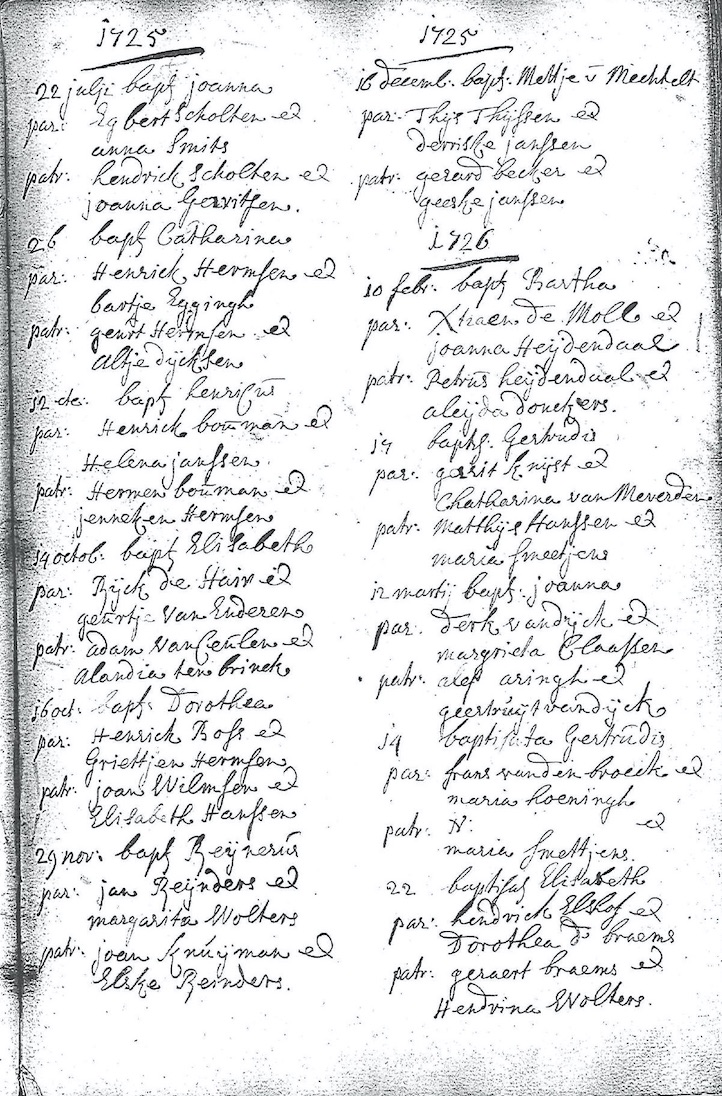 1725
22 julji bapt joanna
par: Egbert Scholten et
anna Smits
patr: hendrick Scholten et
joanna Gerritsen.
26 bapt Catharina
par: Henrick Hermsen et
bartje Eggingh
patr: geurt Hermsen et
altje dijcksen
12 bapt henricus
par: Henrick bouman et
Helena janssen
patr: Hermen bouman et
jenneken Hermsen
14 octob: bapt Elisabeth
par: Rijck de Haer et
geurtje van Enderen
patr: adam van Ceulen et
alandia ten brinck
16 oct: bapt: Dorothea
par: Henrick Boss et
Griettjen Hermsen
patr: joan Wilmsen et
Elisabeth Hanssen
29 nov: bapt Reijnerus
par: jan Reijnders et
margarita Wolters
patr: joan Knuijman et
Elske Reinders.
1725
16 decemb: bapt: Mettje v Mechtelt
par: Thijs Thijssen et
derriske janssen
patr: gerard becker et
geeske janssen
1726
10 febr: bapt Bartha
par: Xtiaen de Moll et
joanna Heijdendaal
patr: Petrus heijdendaal et
aleijda donckers.
14 bapts. Gertrudis
par: gerrit Knijst et
Chatharina van Meverden
patr: Matthijs Hanssen et
maria smeetjens
12 martij bapt: joanna
par: Derk vandijck et
margrieta Claassen
patr: alef aringh et
geertruijt vandijck
14 baptisata Gertrudis
par: frans vanden broeck et
maria hoeningh
patr: N: et
maria smettjens.
22 baptisat Elisabeth
par: hendrick Elshof et
Dorothea d braems
patr: geraert braems et
Hendrina Wolters.